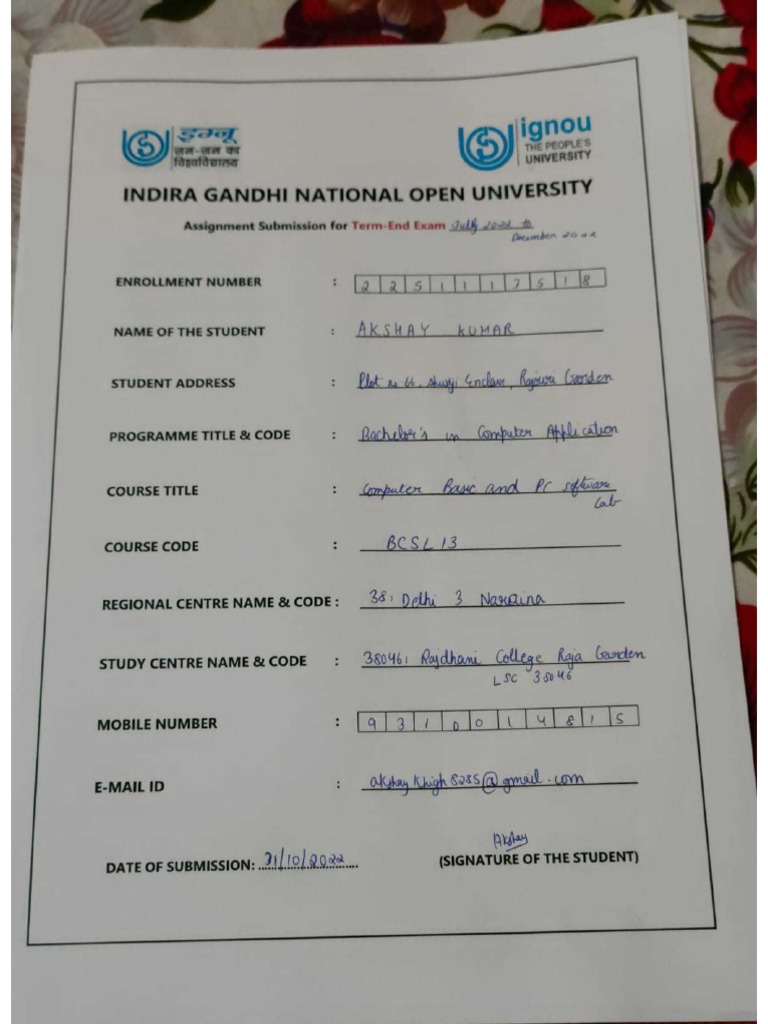 इग्नू
जन-जन का
विश्वविद्यालय
ignou
THE PEOPLE'S
UNIVERSITY
INDIRA GANDHI NATIONAL OPEN UNIVERSITY
Assignment Submission for Term-End Exam July 2022 to
December 2022
ENROLLMENT NUMBER : 2251117518
NAME OF THE STUDENT : AKSHAY KUMAR
STUDENT ADDRESS : Plot no 66, Enclave, Rajouri Garden
PROGRAMME TITLE & CODE : Bachelor's in Computer Application
COURSE TITLE : Computer Basic and PC software
Lab
COURSE CODE : BCSL 13
REGIONAL CENTRE NAME & CODE : 38: Delhi 3 Naraina
STUDY CENTRE NAME & CODE : 38046: Rajdhani College Raja Garden
LSC 38046
MOBILE NUMBER : 9310014815
E-MAIL ID : @gmail.com
DATE OF SUBMISSION: 31/10/2022
Akshay
(SIGNATURE OF THE STUDENT)